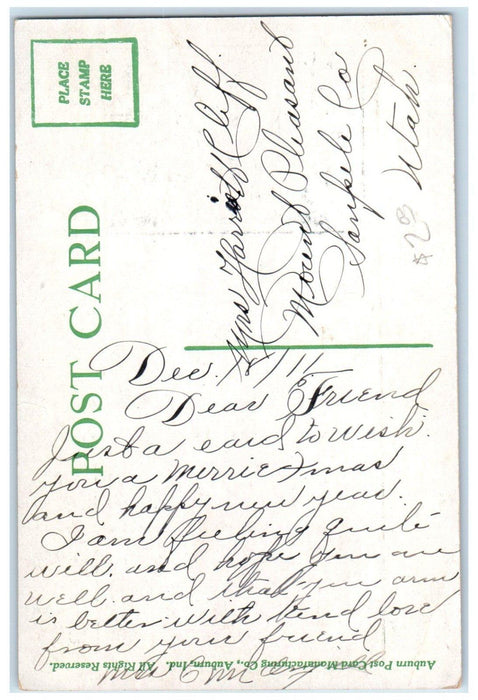 PLACE
STAMP
HERE
POST CARD
Mrs Harriet Cliff
Mount Pleasant
Sanpete Co
Utah.
$ 23
Dec. /11
Dear Friend
Just a card to wish.
you a Merrie Xmas
and happy new year.
I am feeling quite
will. and hope you are
well. and that your arm
is better. with kind love
from your friend
Mrs
Auburn Post Card Manufacturing Co., Auburn, Ind. All Rights Reserved.